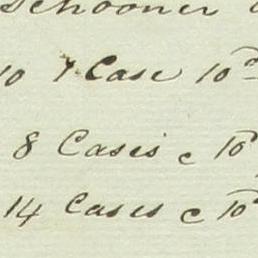 schooner
10 1 Case 10
8 Cases c 10
14 Cases c 10